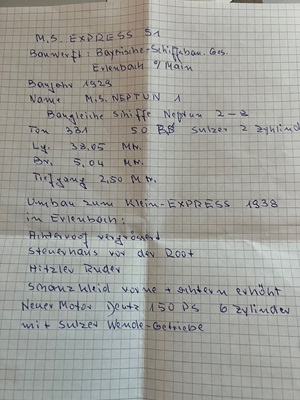 M.S. EXPRESS 51
Bauwerft: Bayerische-Schiffsbau. Ges.
Erlenbach a/Main
Baujahr 1929
Name M.S. NEPTUN 1
Baugleiche Schiffe Neptun 2-8
Ton 331 50 PS Sulzer 2 Zylind
Lg. 38,05 Mtr.
Br. 5,04 Mtr.
Tiefgang 2,50 Mtr.
Umbau zum Klein-EXPRESS 1938
in Erlenbach:
Achtervoof vergrösert
Steuerhaus vor der Roof
Hitzler Ruder
Schanzkleid vorne + achtern erhöht
Neuer Motor Deutz 150 PS 6 Zylinder
mit Sulzer Wende-Getriebe